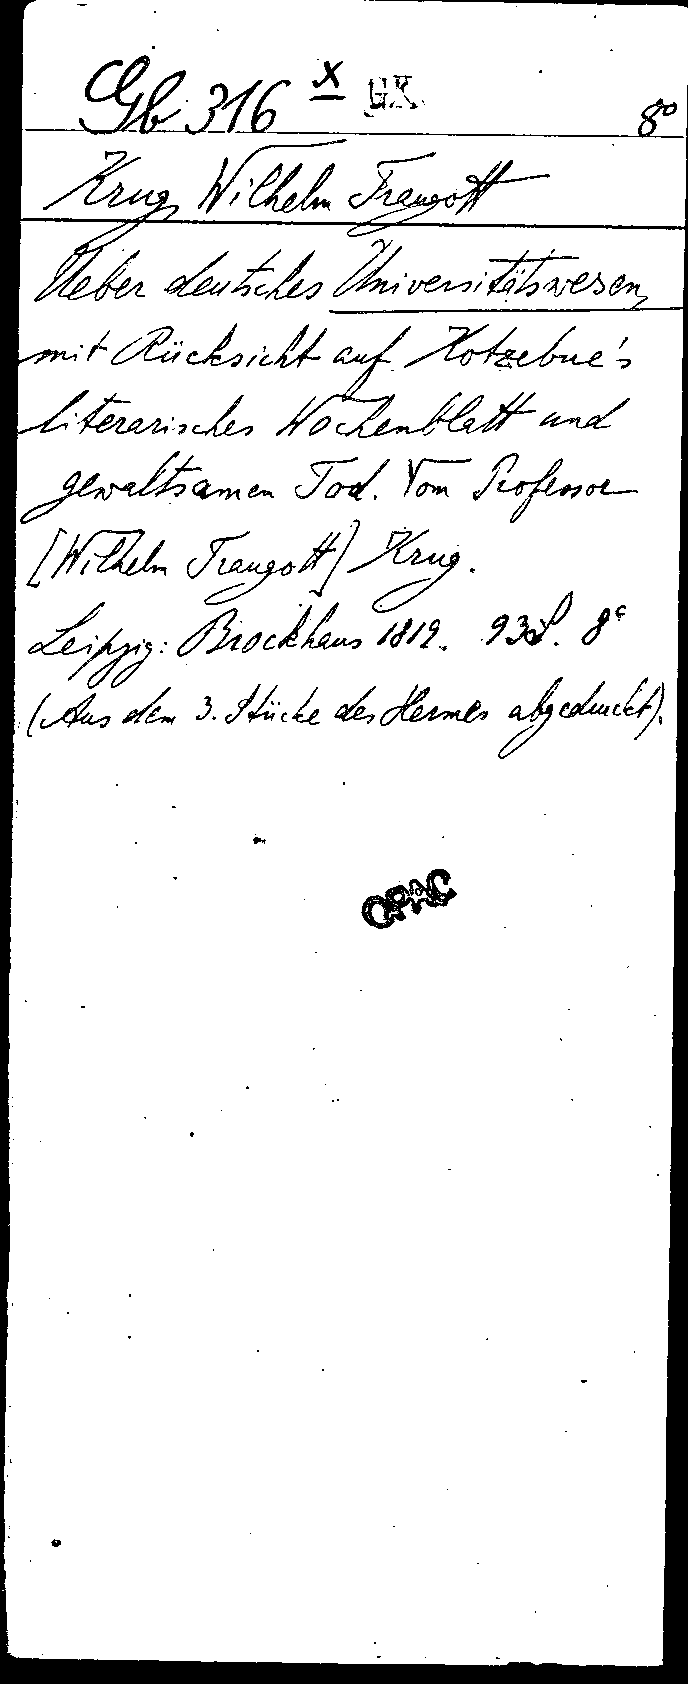 Gb 316 x GK 8°
Krug, Wilhelm Traugott
Ueber deutsches Universitätswesen,
mit Rücksicht auf Kotzebue's
literarisches Wochenblatt und
gewaltsamen Tod. Vom Professor
[Wilhelm Traugott] Krug.
Leipzig: Brockhaus 1819. 93 S. 8°
(Aus dem 3. Stücke des Hermes abgedruckt).
OPAC